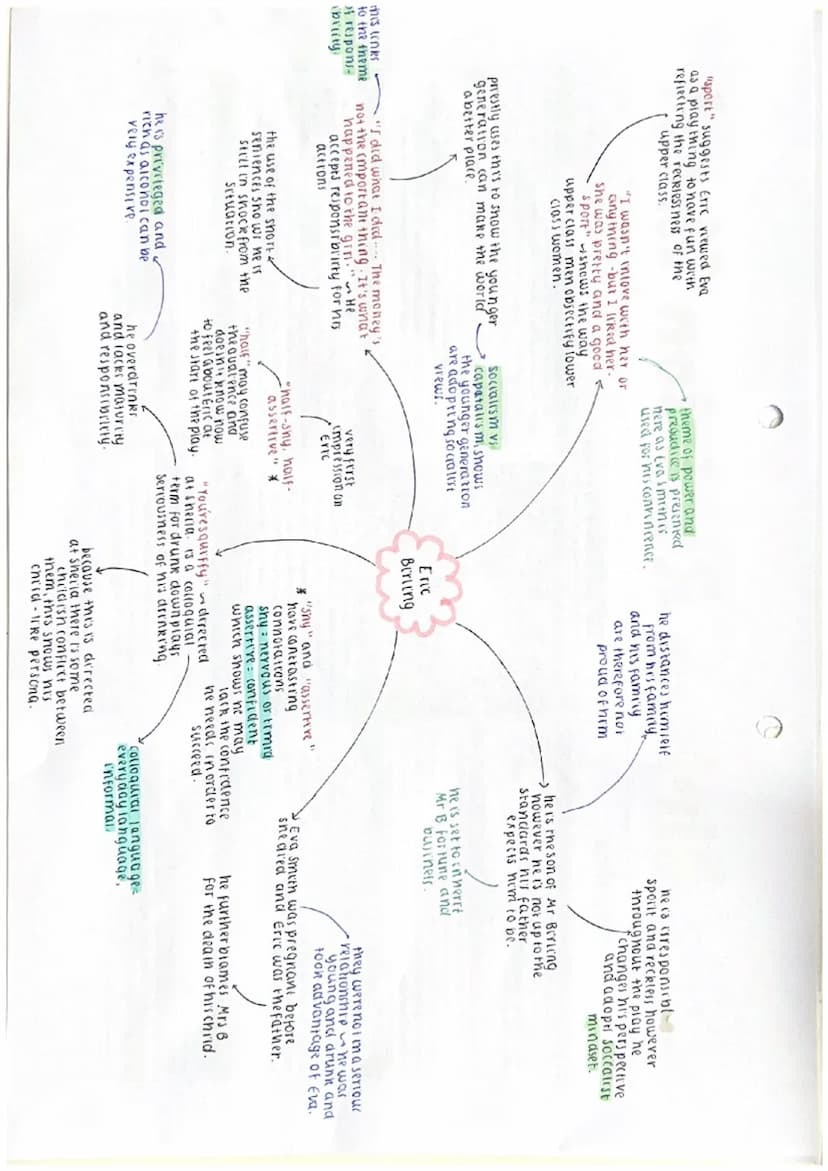 Eric
Birling
"sport" suggests Eric viewed Eva
as a play thing to have fun with
reflecting the recklessness of the
upper class.
"I wasn't inlove with her or
anything - but I liked her -
she was pretty and a good
sport" ~ shows the way
upper class men objectify lower
class women.
theme of power and
prejudice is presented
here as Eva Smith is
used for his
this links
to the theme
of respons-
ibility.
"I did what I did.... The money's
not the important thing. It's what
happened to the girl." ~ He
accepts responsibility for his
actions
priestly uses this to show the younger
generation can make the world
a better place.
socialism vs
capatalism, shows
the younger generation
are adopting socialist
views.
the use of the short
sentences show he is
still in shock from the
situation.
"half-shy, half-
assertive" *
very first
impression on
Eric
"half" may confuse
the audience and
doesn't know how
to feel about Eric at
the start of the play.
* "shy" and "assertive"
have contrasting
connotations
shy = nervous or timid
assertive = confident
which shows he may
lack the confidence
he needs in order to
succeed.
"You're squiffy" ~ directed
at sheila. is a colloquial
term for drunk downplays
seriousness of his drinking.
he overdrinks
and lacks maturity
and responsibility.
he is privileged and
rich as alcohol can be
very expensive.
because this is directed
at sheila there is some
childish conflict between
them, this shows his
child-like persona.
colloquial language =
everyday language,
informal
he is the son of Mr Birling
however he is not up to the
standards his father
expects him to be.
he distances himself
from his family
and his family
are therefore not
proud of him
he is irresponsible
spoilt and reckless however
throughout the play he
changes his perspective
and adopts socialist
mindset.
he is set to inherit
Mr B fortune and
business.
Eva Smith was pregnant before
she died and Eric was the father.
they were not in a serious
relationship ~ he was
young and drunk and
took advantage of Eva.
he further blames Mrs B
for the death of his child.